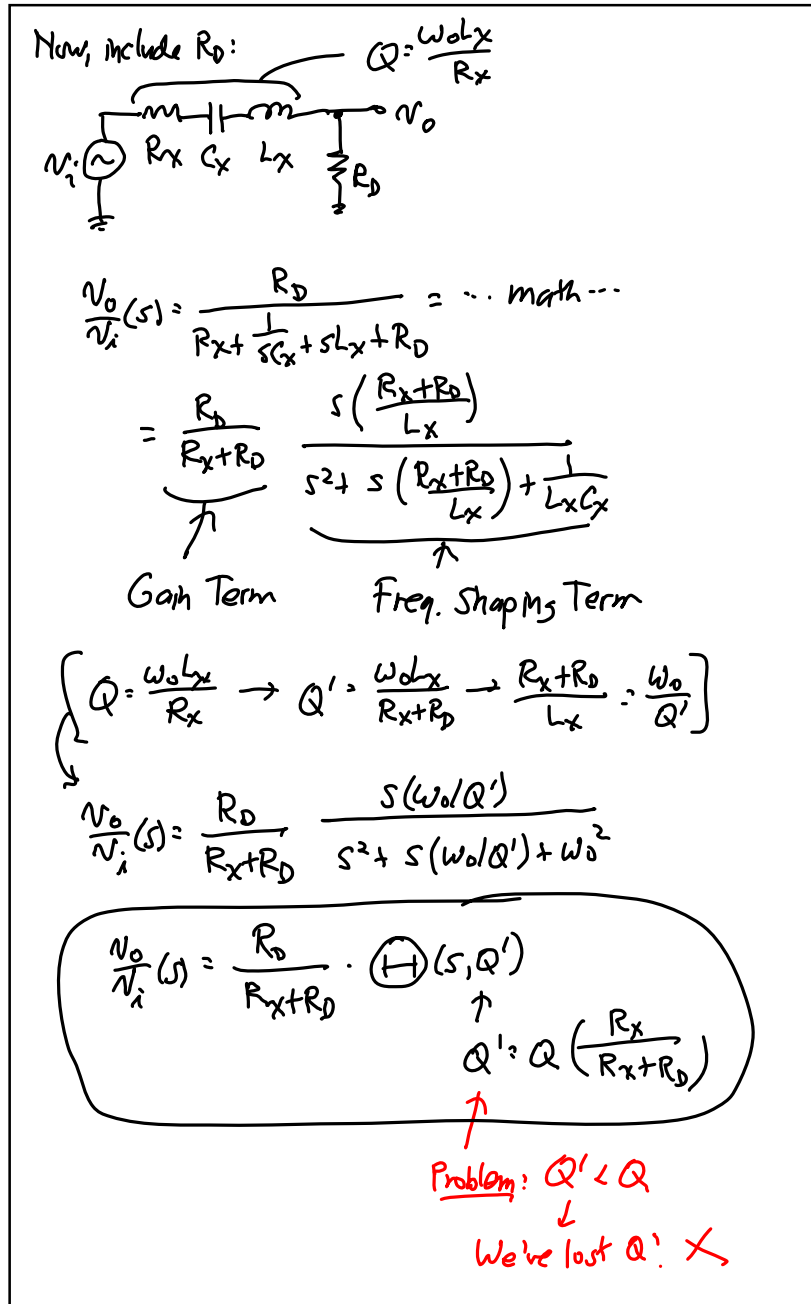 Now, include R_D: Q = ω₀Lx/Rx
v_i Rx Cx Lx R_D v_o
v_o/v_i (s) = R_D/(Rx + 1/(sCx) + sLx + R_D) = ... math ...
= R_D/(Rx+R_D) s((Rx+R_D)/Lx)/(s² + s((Rx+R_D)/Lx) + 1/(LxCx))
Gain Term Freq. Shaping Term
[Q = ω₀Lx/Rx → Q' = ω₀Lx/(Rx+R_D) → (Rx+R_D)/Lx = ω₀/Q']
v_o/v_i (s) = R_D/(Rx+R_D) s(ω₀/Q')/(s² + s(ω₀/Q') + ω₀²)
v_o/v_i (s) = R_D/(Rx+R_D) · Θ(s,Q')
Q' = Q(Rx/(Rx+R_D))
Problem: Q' < Q
We've lost Q!